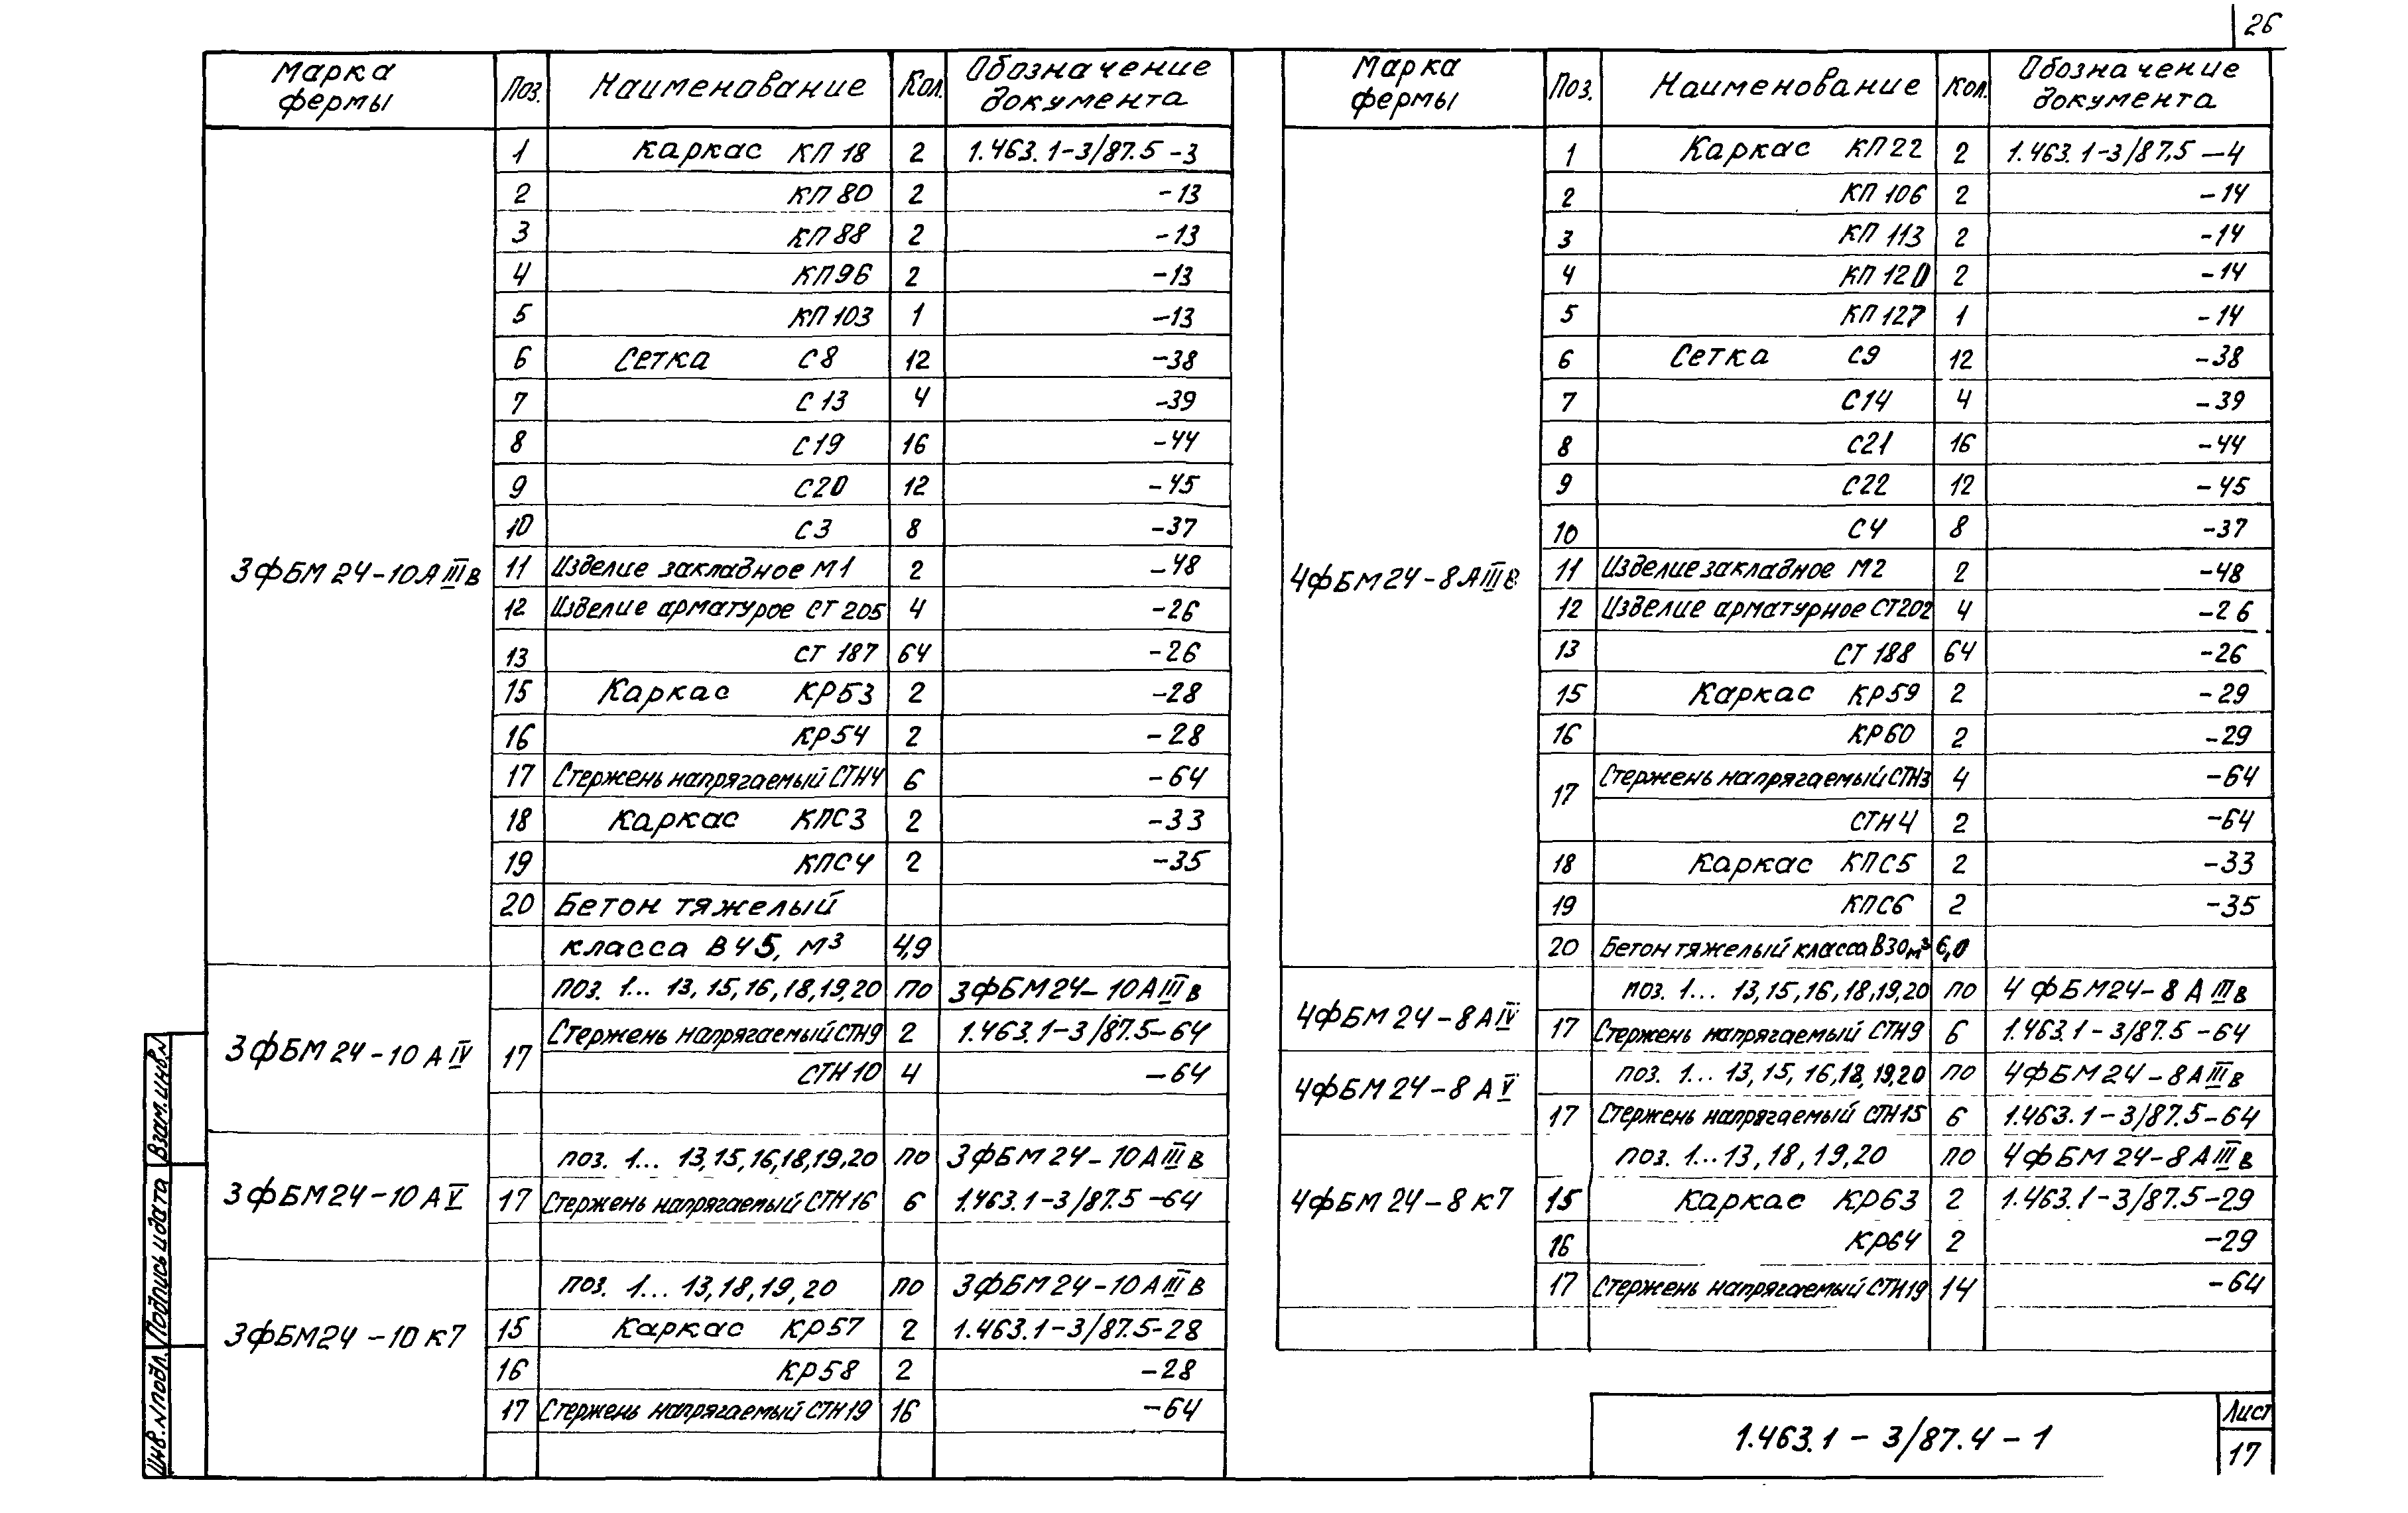 26
Марка фермы Поз. Наименование Кол. Обозначение документа
3ФБМ24-10АIIIв
1 Каркас КП18 2 1.463.1-3/87.5-3
2 КП80 2 -13
3 КП88 2 -13
4 КП96 2 -13
5 КП103 1 -13
6 Сетка С8 12 -38
7 С13 4 -39
8 С19 16 -44
9 С20 12 -45
10 С3 8 -37
11 Изделие закладное М1 2 -48
12 Изделие арматурое СТ205 4 -26
13 СТ187 64 -26
15 Каркас КР53 2 -28
16 КР54 2 -28
17 Стержень напрягаемый СТН4 6 -64
18 Каркас КПС3 2 -33
19 КПС4 2 -35
20 Бетон тяжелый
класса В45, м³ 4,9
3ФБМ24-10АIV
поз. 1... 13,15,16,18,19,20 по 3ФБМ24-10АIIIв
17 Стержень напрягаемый СТН9 2 1.463.1-3/87.5-64
СТН10 4 -64
3ФБМ24-10АV
поз. 1... 13,15,16,18,19,20 по 3ФБМ24-10АIIIв
17 Стержень напрягаемый СТН16 6 1.463.1-3/87.5-64
3ФБМ24-10К7
поз. 1... 13,18,19,20 по 3ФБМ24-10АIIIв
15 Каркас КР57 2 1.463.1-3/87.5-28
16 КР58 2 -28
17 Стержень напрягаемый СТН19 16 -64
Марка фермы Поз. Наименование Кол. Обозначение документа
4ФБМ24-8АIIIв
1 Каркас КП22 2 1.463.1-3/87.5-4
2 КП106 2 -14
3 КП113 2 -14
4 КП120 2 -14
5 КП127 1 -14
6 Сетка С9 12 -38
7 С14 4 -39
8 С21 16 -44
9 С22 12 -45
10 С4 8 -37
11 Изделие закладное М2 2 -48
12 Изделие арматурное СТ202 4 -26
13 СТ188 64 -26
15 Каркас КР59 2 -29
16 КР60 2 -29
17 Стержень напрягаемый СТН3 4 -64
СТН4 2 -64
18 Каркас КПС5 2 -33
19 КПС6 2 -35
20 Бетон тяжелый класса В30м³ 6,0
4ФБМ24-8АIV
поз. 1... 13,15,16,18,19,20 по 4ФБМ24-8АIIIв
17 Стержень напрягаемый СТН9 6 1.463.1-3/87.5-64
4ФБМ24-8АV
поз. 1... 13,15,16,18,19,20 по 4ФБМ24-8АIIIв
17 Стержень напрягаемый СТН15 6 1.463.1-3/87.5-64
4ФБМ24-8К7
поз. 1...13,18,19,20 по 4ФБМ24-8АIIIв
15 Каркас КР63 2 1.463.1-3/87.5-29
16 КР64 2 -29
17 Стержень напрягаемый СТН19 14 -64
Взам.инв.N
Подпись и дата
Инв.Nподл.
1.463.1-3/87.4-1
Лист
17